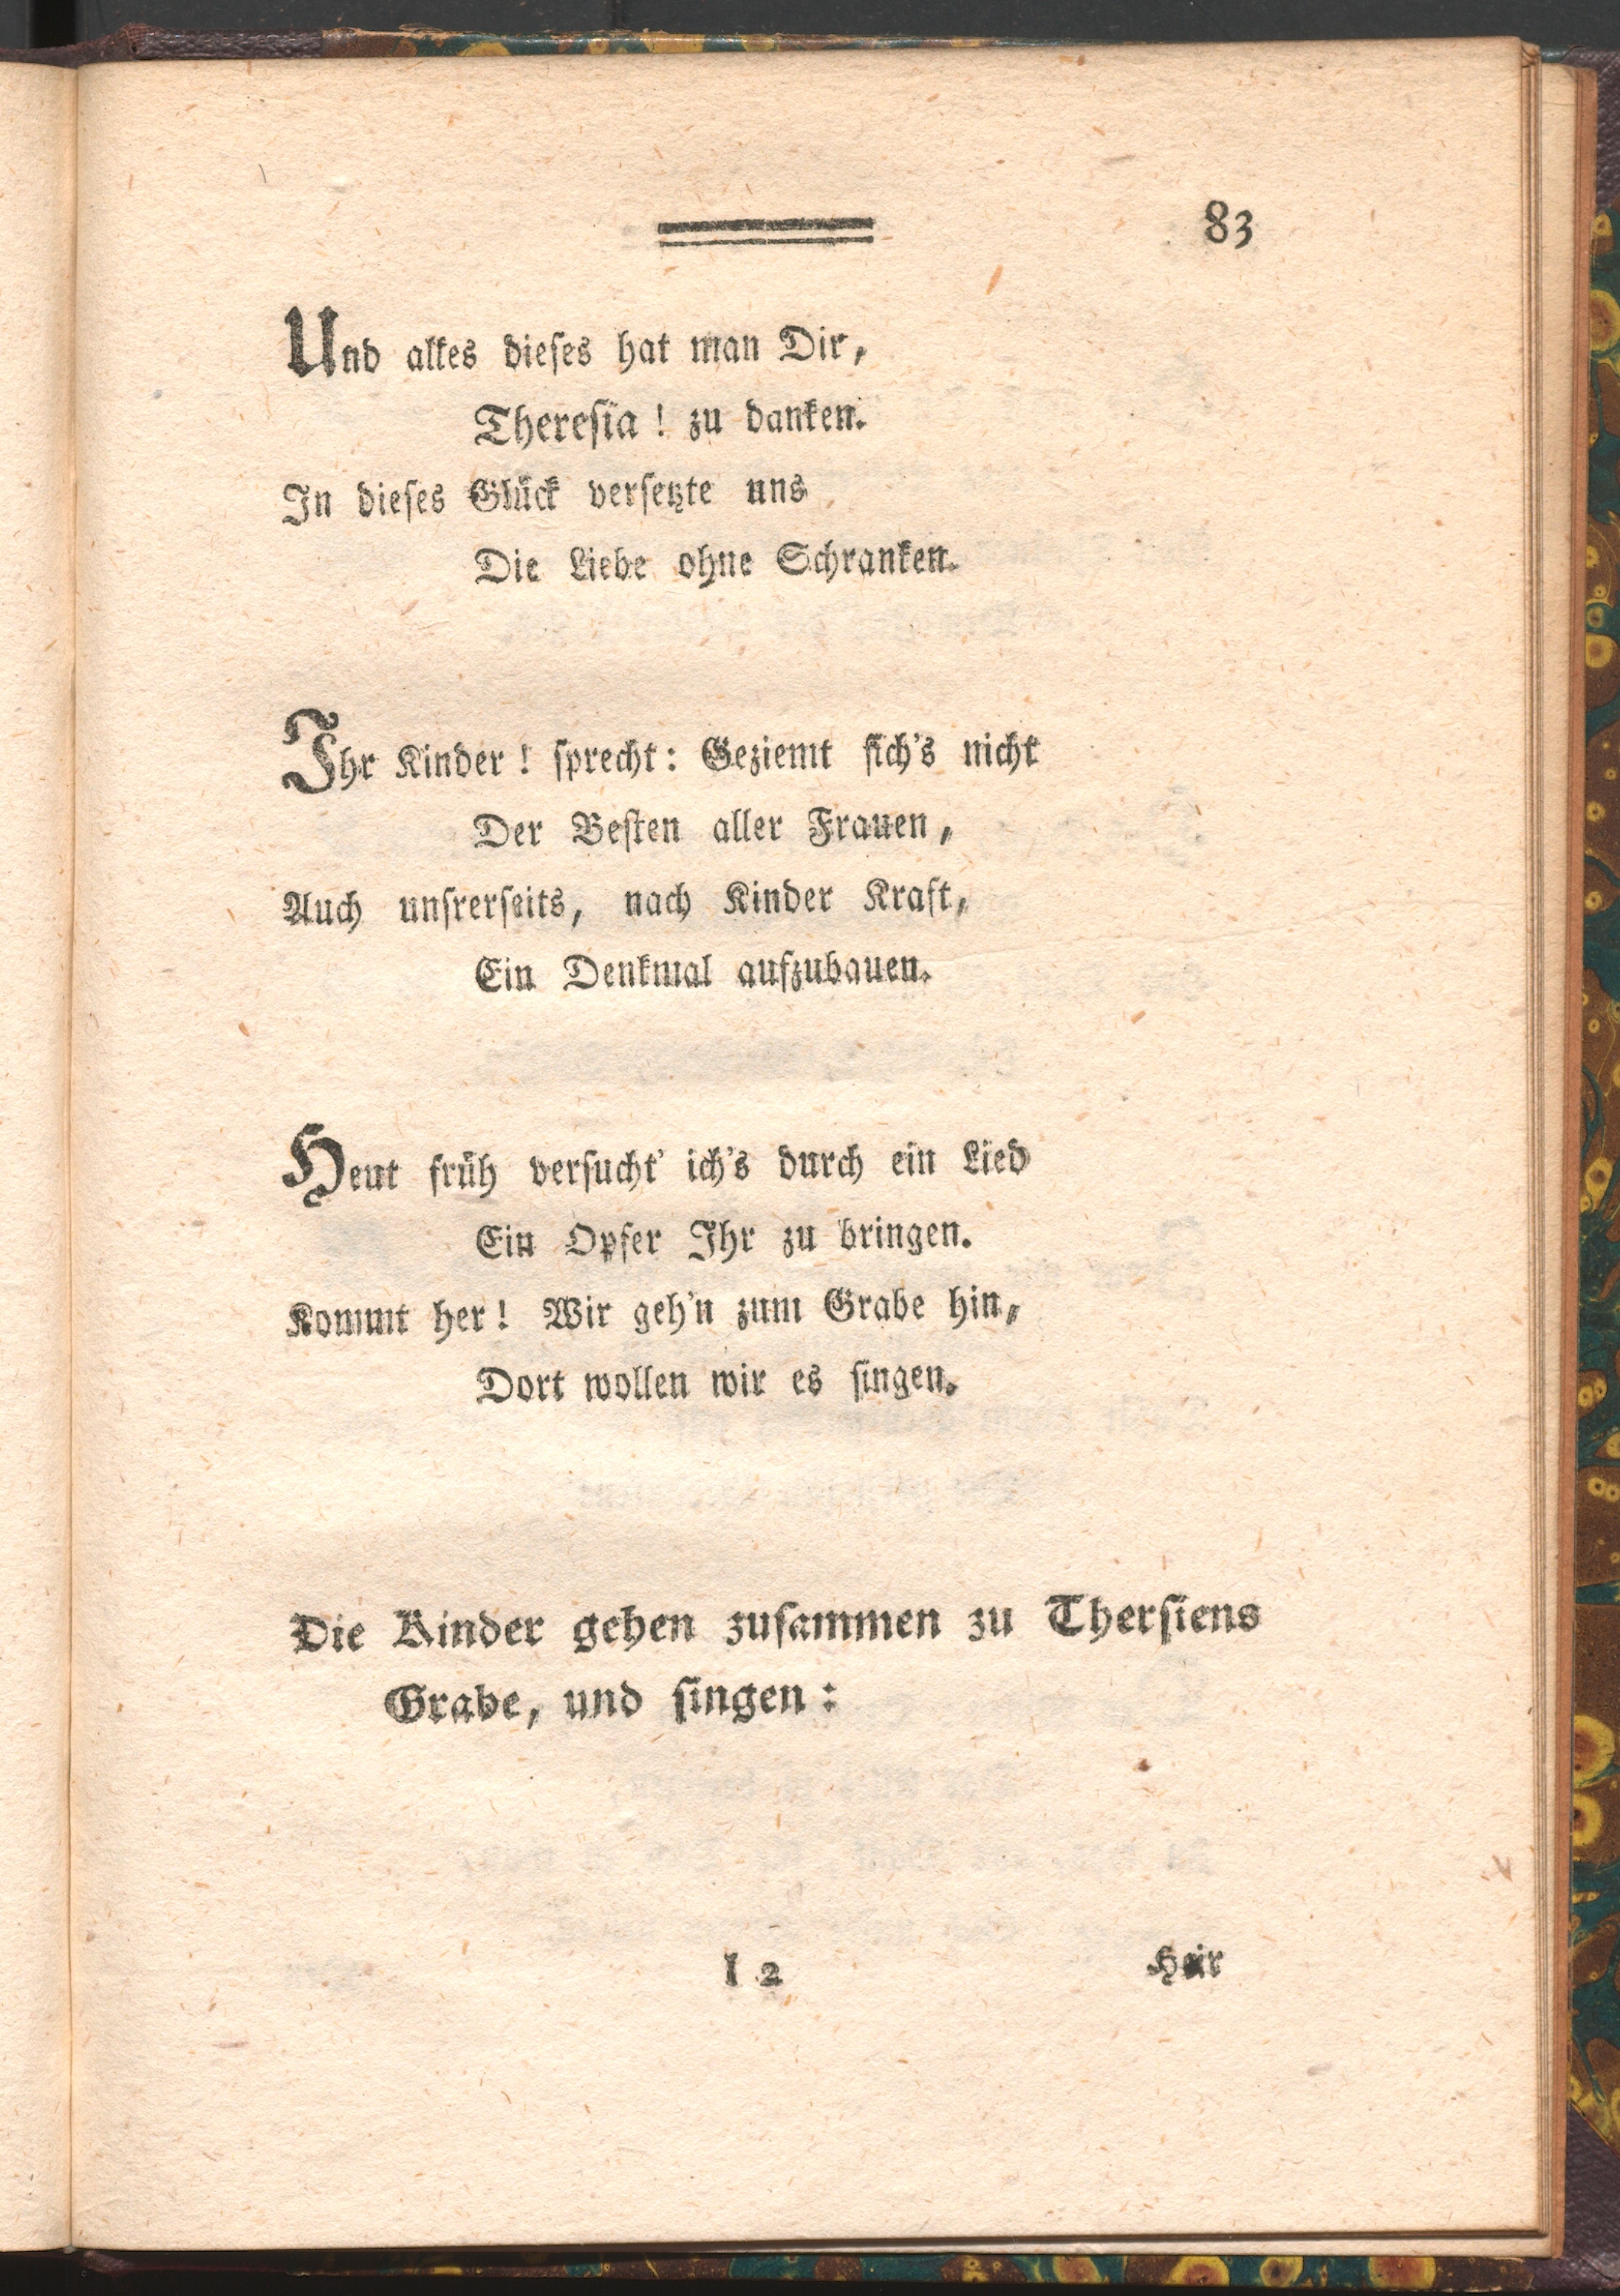 83
Und alles dieses hat man Dir,
Theresia! zu danken.
In dieses Glück versetzte uns
Die Liebe ohne Schranken.
Ihr Kinder! sprecht: Geziemt sich's nicht
Der Besten aller Frauen,
Auch unsrerseits, nach Kinder Kraft,
Ein Denkmal aufzubauen.
Heut früh versucht' ich's durch ein Lied
Ein Opfer Ihr zu bringen.
Kommt her! Wir geh'n zum Grabe hin,
Dort wollen wir es singen.
Die Kinder gehen zusammen zu Thersiens
Grabe, und singen:
L 2